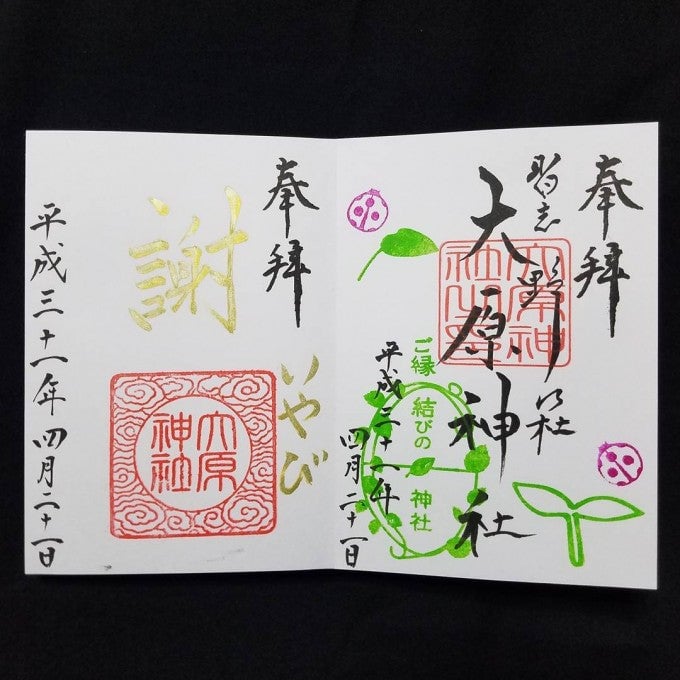 奉拝
習志野
大原神社
大原神
社之印
ご縁結びの神社
平成三十一年
四月二十一日
奉拝
謝
いやび
大原
神社
平成三十一年四月二十一日